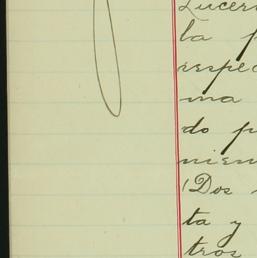 Lucer
la p
respec
ma
do p
nien
(Dos
ta y
tros